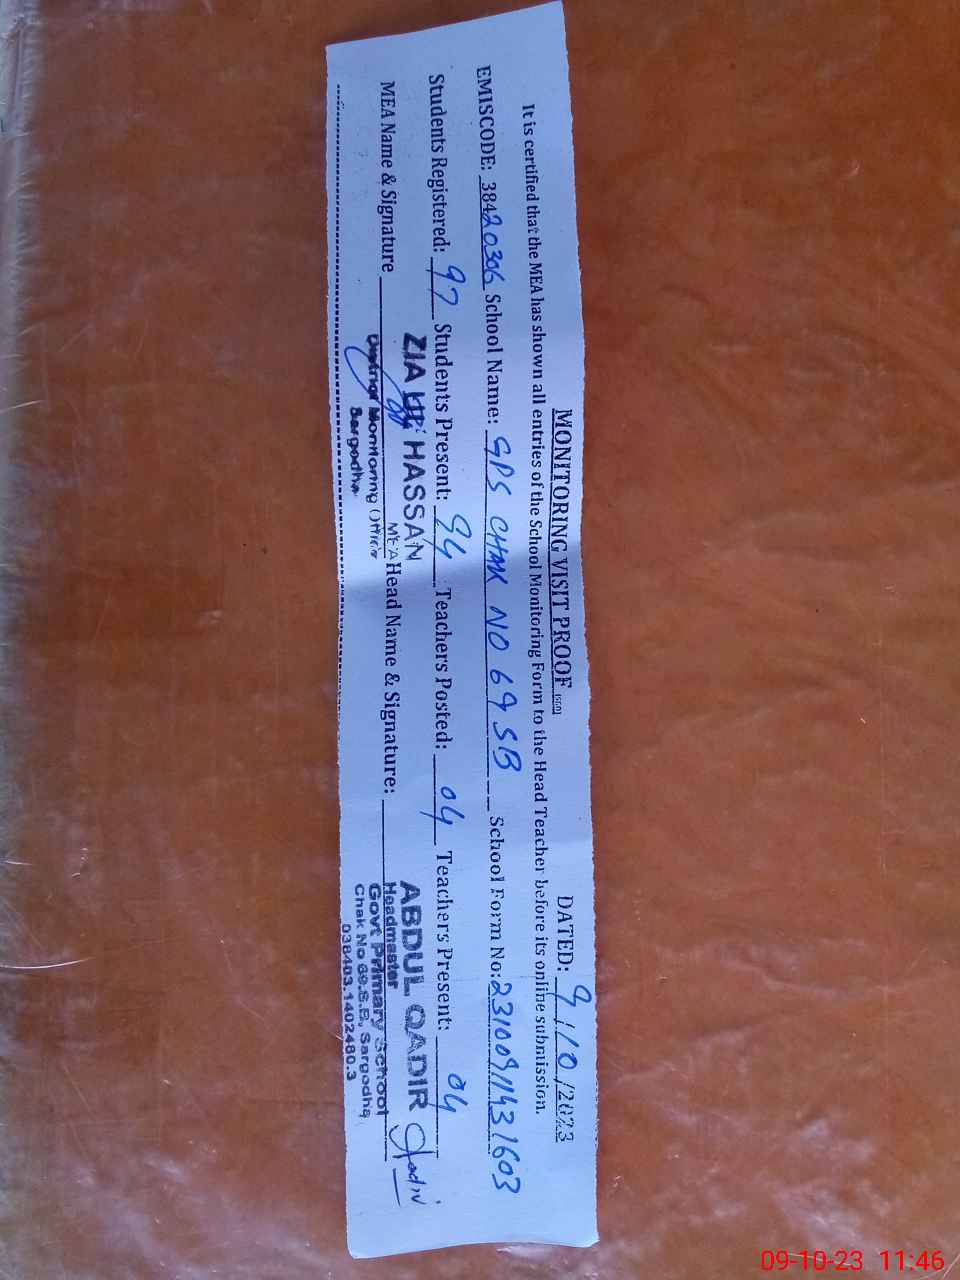 MONITORING VISIT PROOF
DATED: 9/10/2023
It is certified that the MEA has shown all entries of the School Monitoring Form to the Head Teacher before its online submission.
EMISCODE: 38420306 School Name: GPS CHAK NO 69 SB School Form No: 23100911431603
Students Registered: 97 Students Present: 94 Teachers Posted: 04 Teachers Present: 04
MEA Name & Signature Head Name & Signature:
ZIA UL HASSAN
MEA
District Monitoring Officer
Sargodha
ABDUL QADIR
Headmaster
Govt Primary School
Chak No 69.S.B, Sargodha
038403.1402480.3
Qadir
09-10-23 11:46